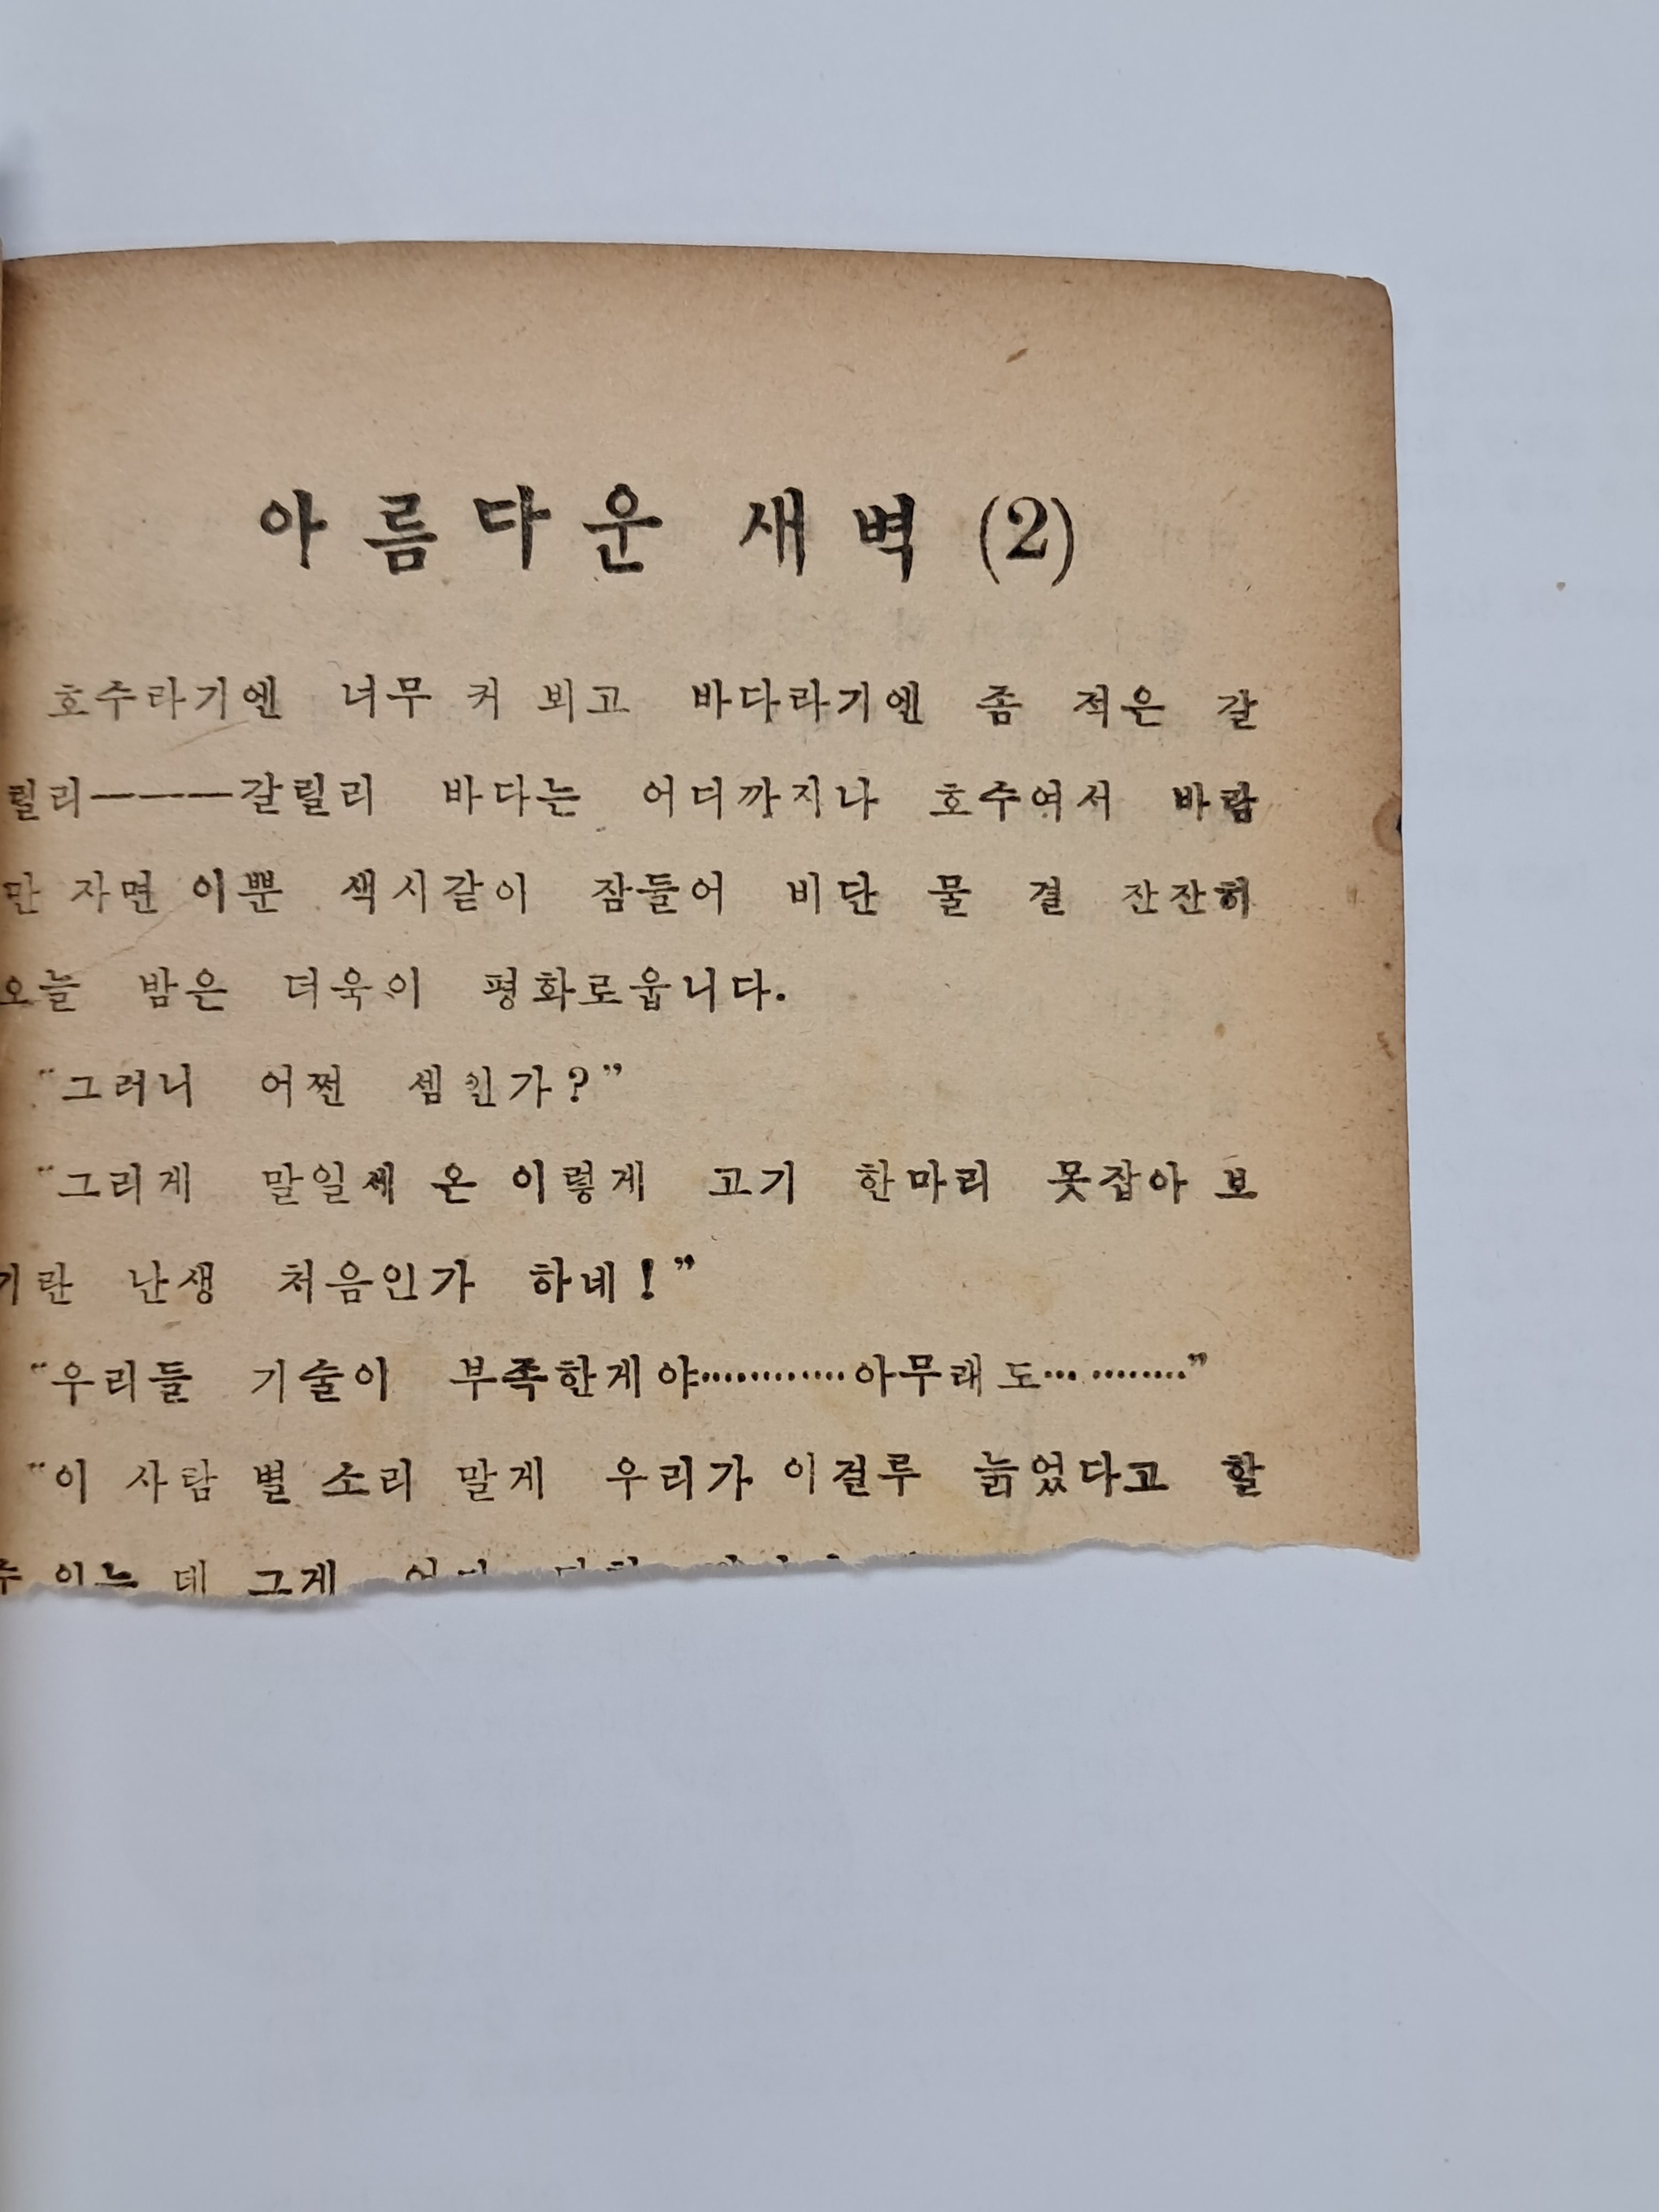 아름다운 새벽 (2)
호수라기엔 너무 커 뵈고 바다라기엔 좀 적은 갈
릴리———갈릴리 바다는 어디까지나 호수여서 바람
만 자면 이뿐 색시같이 잠들어 비단 물 결 잔잔히
오늘 밤은 더욱이 평화로웁니다.
“그러니 어쩐 셈인가?”
“그리게 말일세 온 이렇게 고기 한마리 못잡아 보
기란 난생 처음인가 하네!”
“우리들 기술이 부족한게야…………아무래도………”
“이 사람 별 소리 말게 우리가 이걸루 늙었다고 할
데 그게